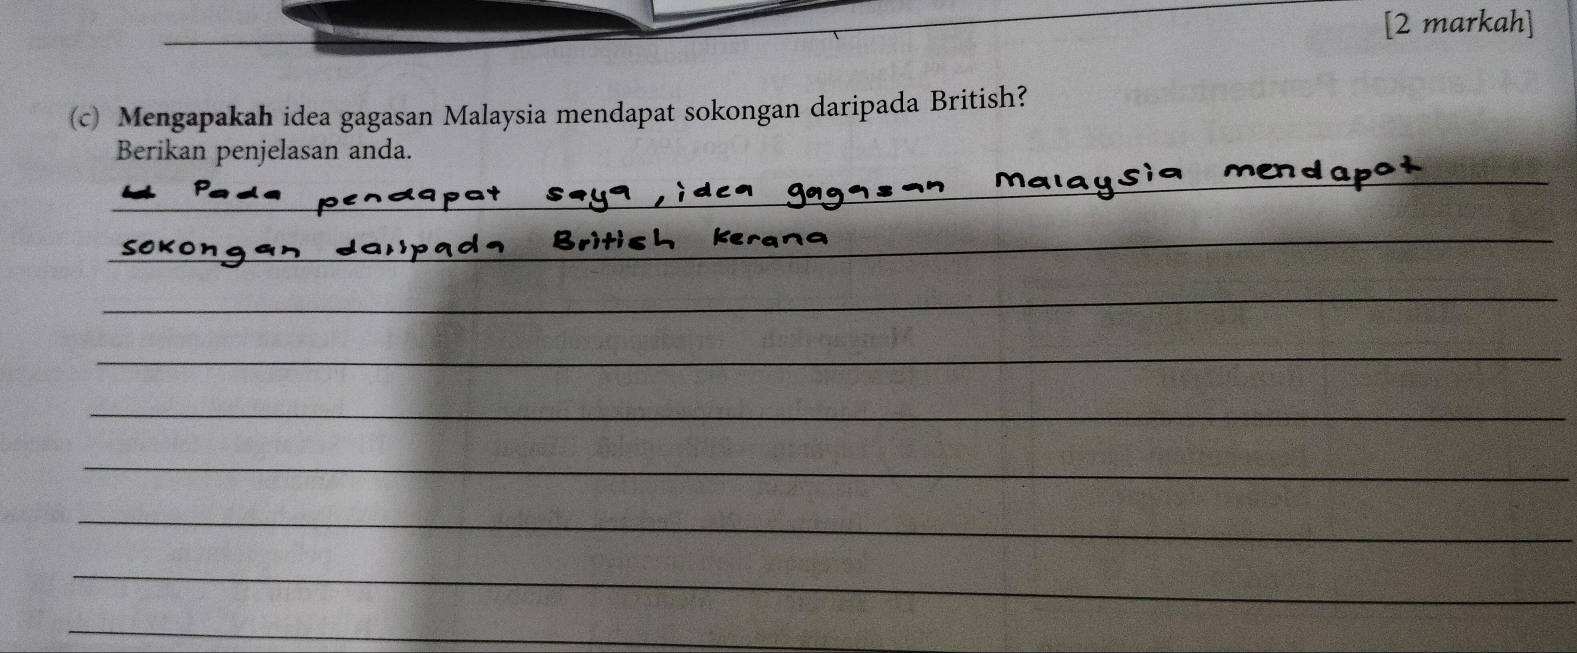 [2 markah]
(c) Mengapakah idea gagasan Malaysia mendapat sokongan daripada British?
Berikan penjelasan anda.
Pada pendapat saya, idea gagasan Malaysia mendapat
sokongan daripada British kerana